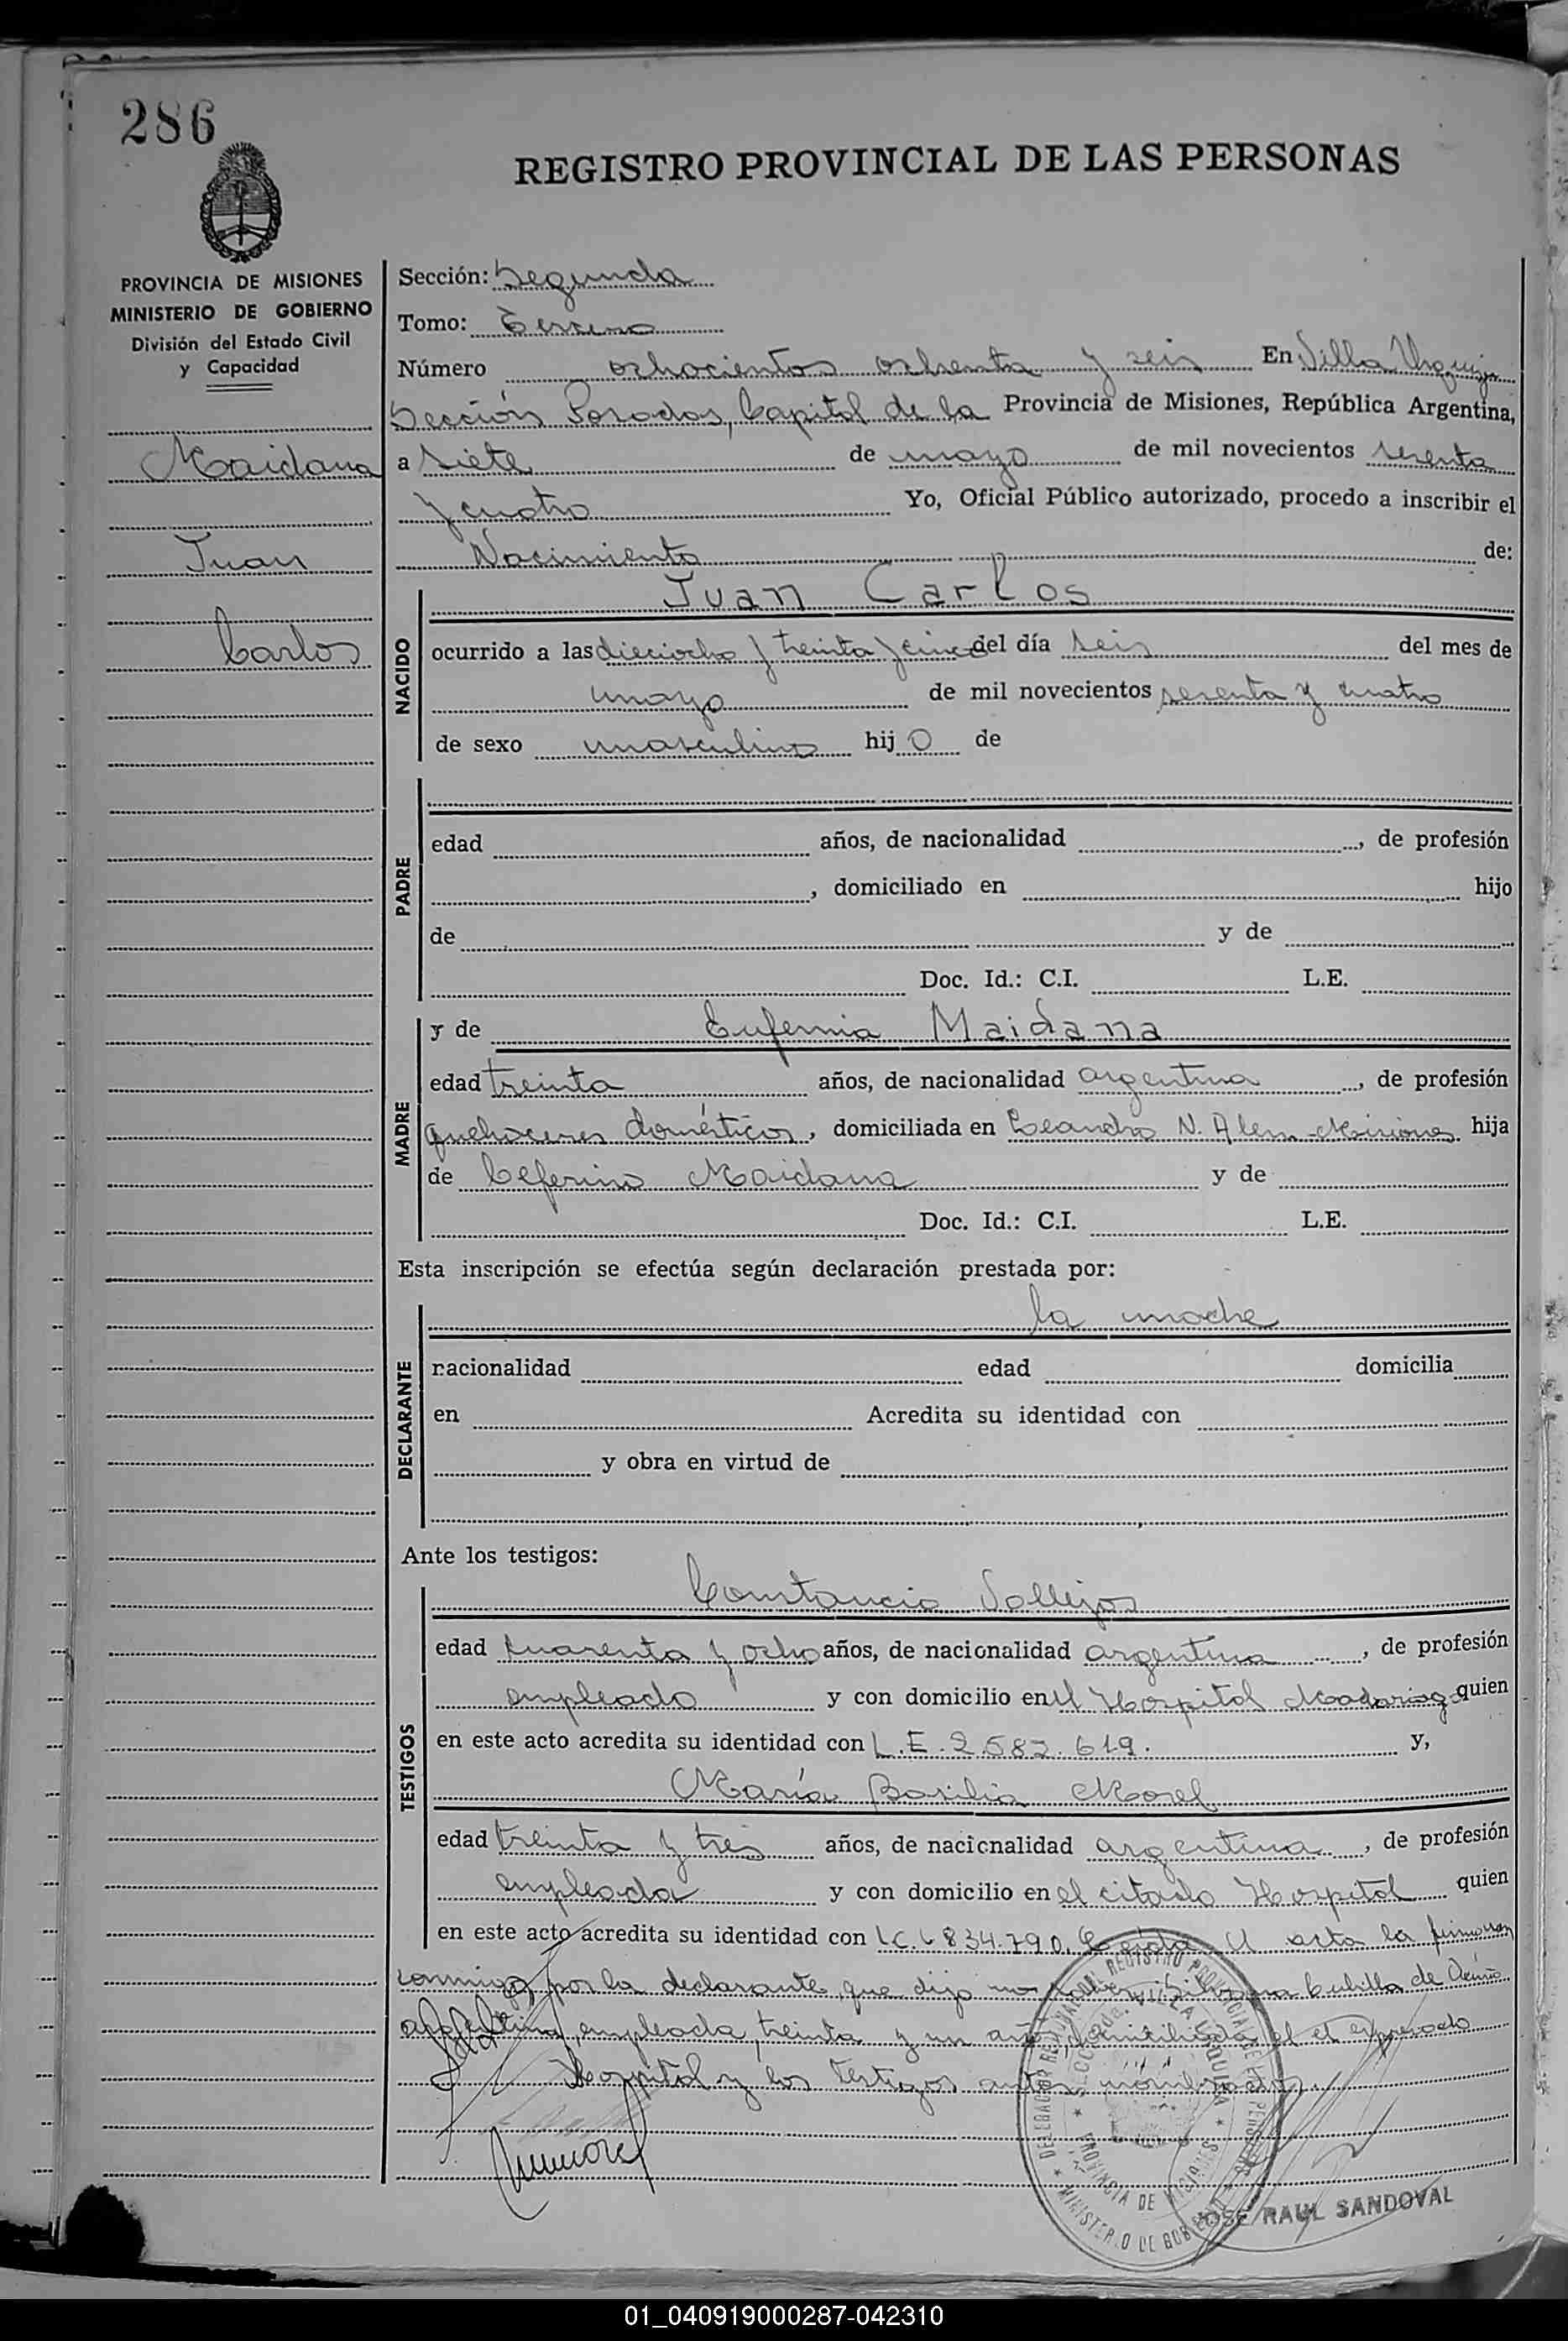 286
REGISTRO PROVINCIAL DE LAS PERSONAS
PROVINCIA DE MISIONES
MINISTERIO DE GOBIERNO
División del Estado Civil
y Capacidad
Maidana
Juan
Carlos
Sección: Segunda
Tomo: Tercero
Número ochocientos ochenta y seis En Villa Urquiza
Sección Posadas, Capital de la Provincia de Misiones, República Argentina,
a siete de mayo de mil novecientos sesenta
y cuatro Yo, Oficial Público autorizado, procedo a inscribir el
Nacimiento de:
NACIDO
Juan Carlos
ocurrido a las dieciocho y treinta y cinco del día seis del mes de
mayo de mil novecientos sesenta y cuatro
de sexo masculino hij o de
PADRE
edad años, de nacionalidad , de profesión
, domiciliado en hijo
de y de
Doc. Id.: C.I. L.E.
MADRE
y de Eufemia Maidana
edad treinta años, de nacionalidad argentina , de profesión
quehaceres domésticos, domiciliada en Leandro N. Alem-Misiones hija
de Ceferino Maidana y de
Doc. Id.: C.I. L.E.
Esta inscripción se efectúa según declaración prestada por:
DECLARANTE
la madre
nacionalidad edad domicilia
en Acredita su identidad con
y obra en virtud de
Ante los testigos:
TESTIGOS
Constancio Vallejos
edad cuarenta y ocho años, de nacionalidad argentina , de profesión
empleado y con domicilio en el Hospital Madariaga quien
en este acto acredita su identidad con L.E. 2.582.619. y,
María Basilia Morel
edad treinta y tres años, de nacionalidad argentina , de profesión
empleada y con domicilio en el citado Hospital quien
en este acto acredita su identidad con LC. 6834.790. Leída el acta la firman
conmigo, por la declarante, que dijo no saber, de
argentina, empleada, treinta y un años, domiciliada el expresado
Hospital y los testigos antes nombrados.
DELEGACION REGISTRO PROVINCIAL DE LAS PERSONAS
VILLA URQUIZA
PROVINCIA DE MISIONES
MINISTERIO DE GOBIERNO
JOSE RAUL SANDOVAL
01_040919000287-042310